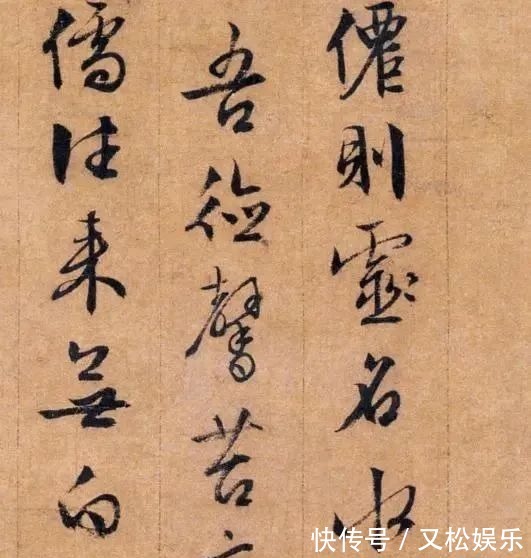 僊則靈名水
吾德馨苔
儒往來無白
快传号 / 又松娱乐